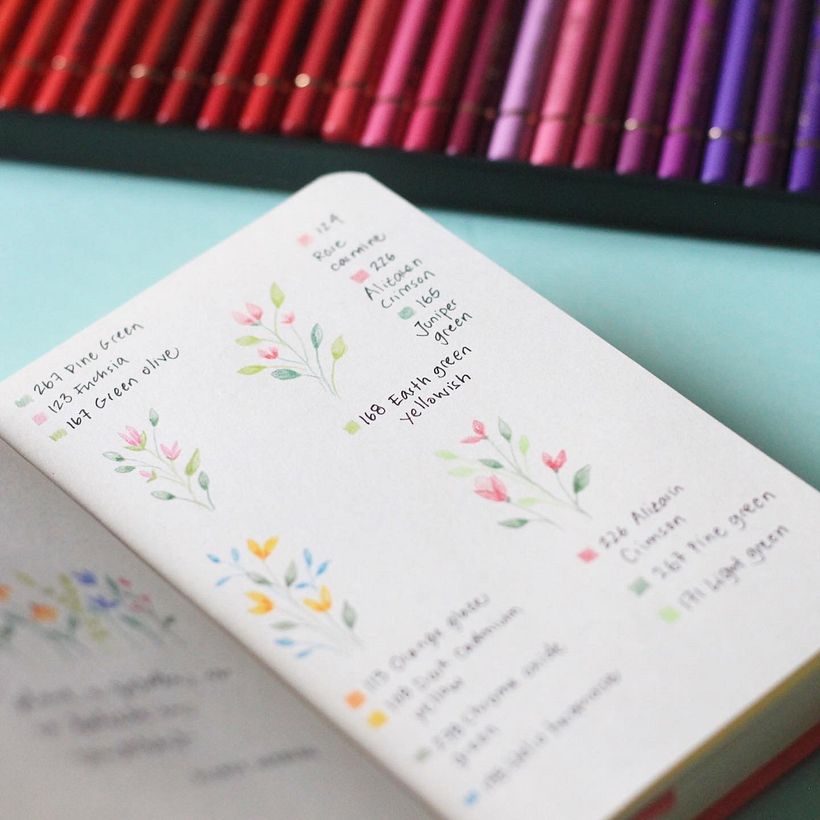 267 Pine Green
123 Fuchsia
167 Green olive
124
Rose
carmine
226
Alizarin
Crimson
165
Juniper
green
168 Earth green
yellowish
226 Alizarin
Crimson
267 Pine green
171 Light green
113 Orange glaze
Dark cadmium
yellow
278 Chrome oxide
green